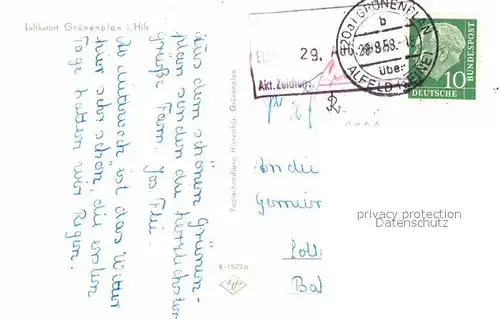 Luftkurort Grünenplan i. Hils
Aus dem schönen Grünen-
plan senden die herzlichsten
Grüße Fam. Jos
Ab Mittwoch ist das Wetter
hier sehr schön, die ersten
Tage hatten wir Regen.
Papierhandlung Hinterthür, Grünenplan
6-1522a
Agfa
29. AUG.
Akt. Zeichen:
(20a) GRÜNENPLAN
b
über
ALFELD (LEINE)
DEUTSCHE
BUNDESPOST
10
An die
Gemein
Bad
privacy protection
Datenschutz